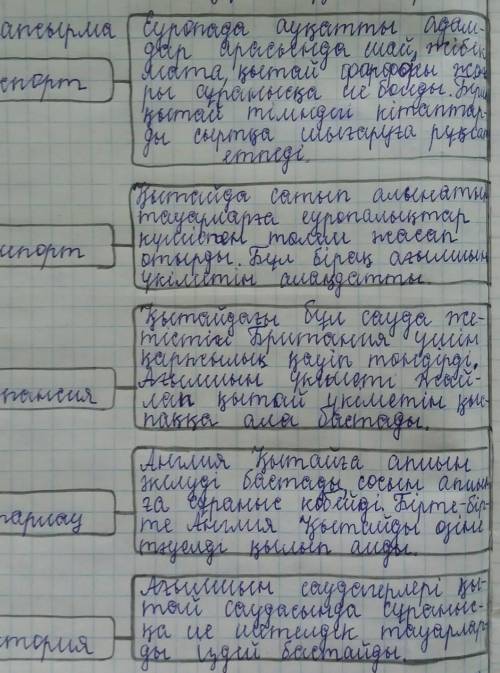 апсырма
Еуропада ауқатты адам-
дар арасында шай, жібек
мата, қытай фарфоры жо-
спорт
ры сұранысқа ие болды. Бірақ
қытай тіліндегі кітаптар-
ды сыртқа шығаруға рұқсат
етпеді.
Қытайда сатып алынатын
тауарларға еуропалықтар
күміспен төлем жасап
спорт
отырды. Бұл бірақ ағылшын
үкіметін алаңдатты.
Қытайдағы бұл сауда же-
тістігі Британия үшін
қаржылық қауіп төндірді.
пансия
Ағылшын үкіметі жай-
лап қытай үкіметін қы-
паққа ала бастады.
Англия Қытайға апиын
әкелуді бастады сосын апиын-
ға сұраныс көбейді. Бірте-бір-
тарлау
те Англия Қытайды өзіне
тәуелді қылып алды.
Ағылшын саудагерлері қы-
тай саудасында сұраныс-
тория
қа ие шетелдік тауарлар-
ды іздей бастайды.